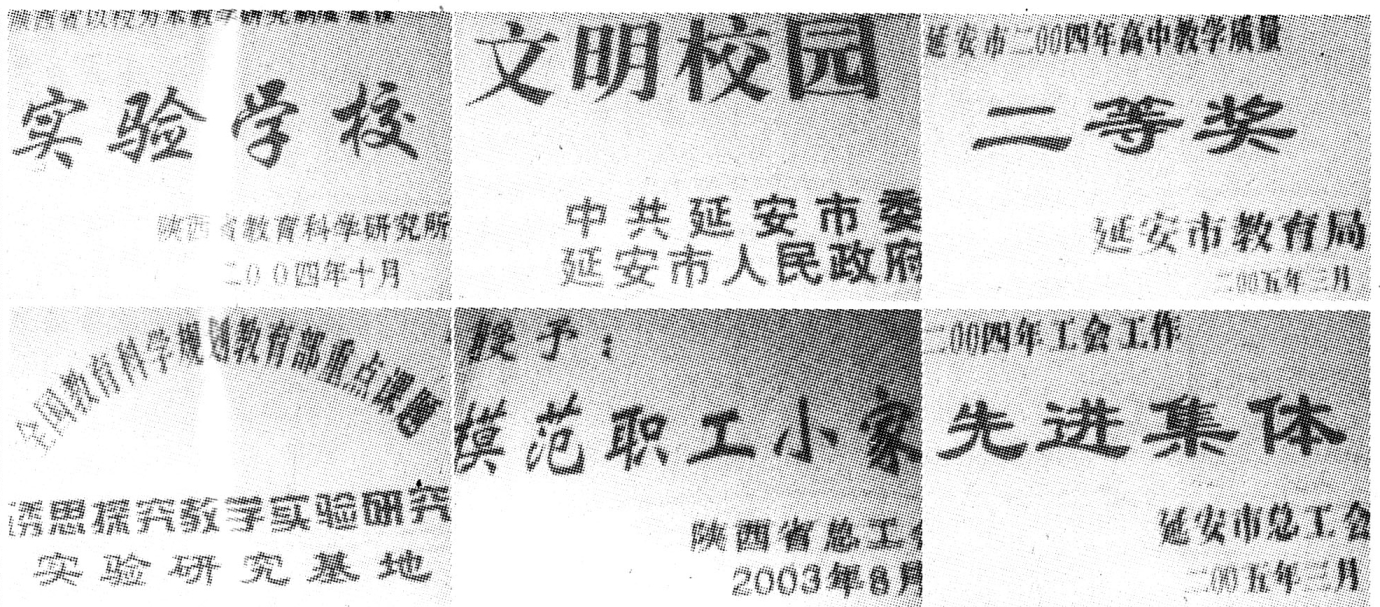 实验学校
陕西省教育科学研究所
二00四年十月
文明校园
中共延安市委
延安市人民政府
延安市二00四年高中教学质量
二等奖
延安市教育局
二00五年三月
全国教育科学规划教育部重点课题
诱思探究教学实验研究
实验研究基地
授予：
模范职工小家
陕西省总工会
2003年8月
二00四年工会工作
先进集体
延安市总工会
二00五年三月